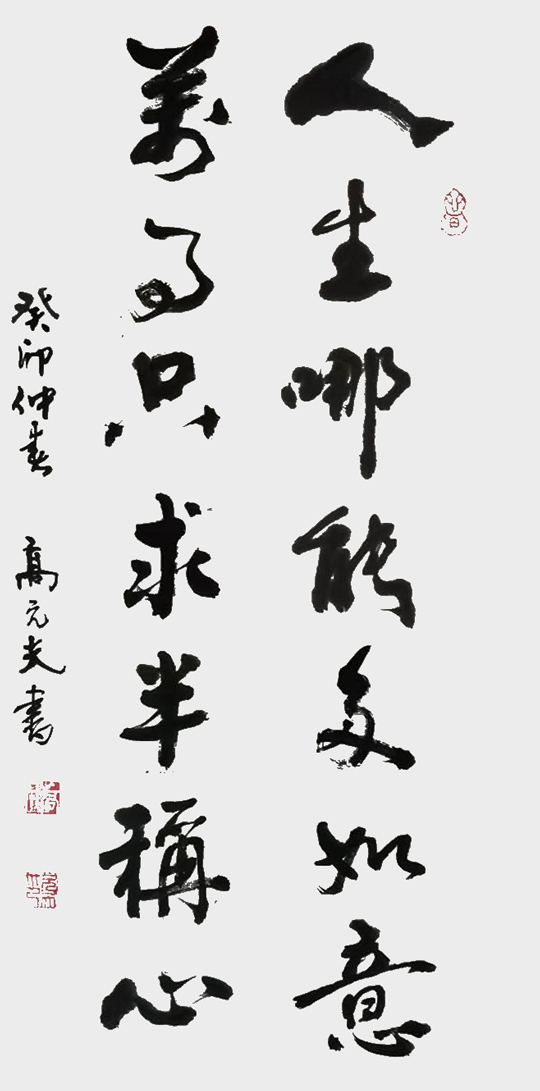 人生哪能多如意
萬事只求半稱心
癸卯仲春 高元夫書